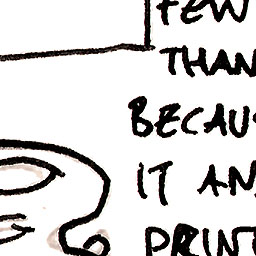 FEW
THAN
BECAU
IT AN
PRINT